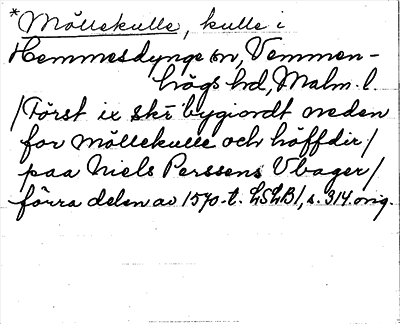 *Möllekulle, kulle i
Hemmesdynge sn, Vemmen-
högs hd, Malm. l.
/Först ix skr bygiordt neden
for möllekulle och höffdir/
paa Niels Perssens Vbager/
förra delen av 1570-t. LSLB1, s. 314 orig.